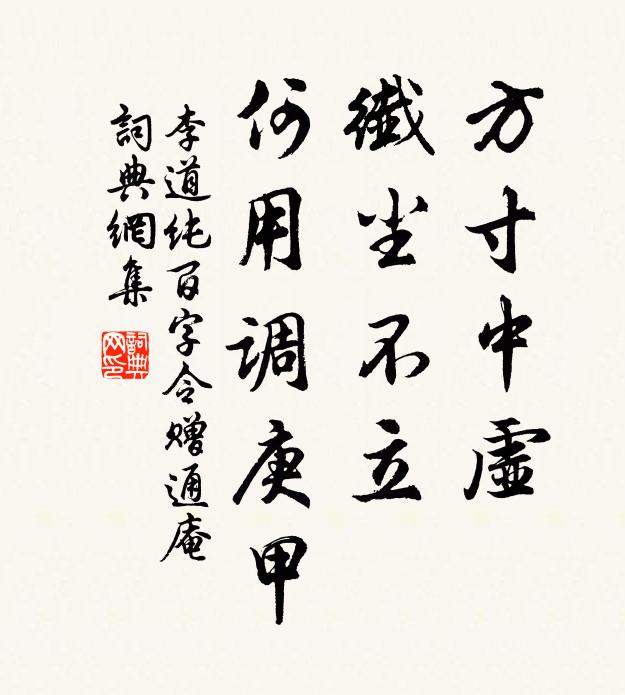 方寸中虛
纖尘不立
何用調庚甲
李道纯百字令赠通庵
詞典網集
詞典网印